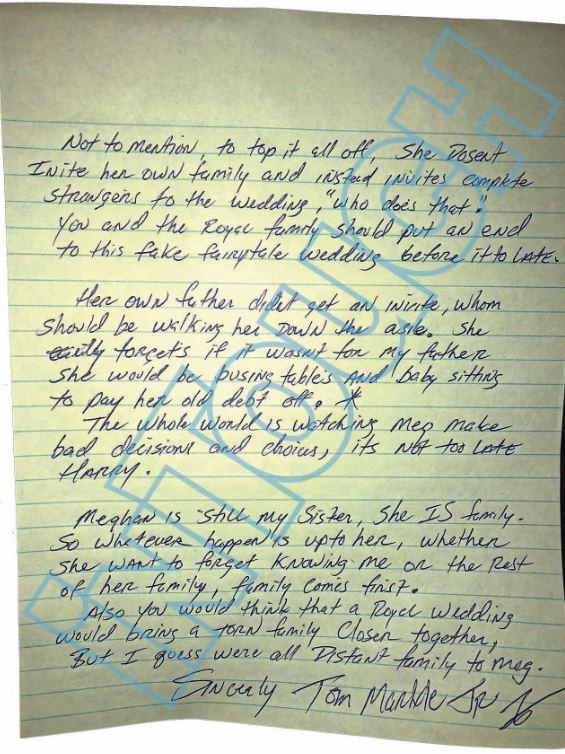 Not to mention, to top it all off, She Dosent
Invite her own family and insted invites complete
Strangers to the wedding, "who does that".
You and the Royal family should put an end
to this fake fairytale wedding before it to LATE.
Her own father didnt get an invite, whom
Should be walking her Down the asle. She
forgets if it wasnt for my father
She would be busing tables AND baby sitting
to pay her old debt off. *
The whole world is watching Meg make
bad decisions and choices, its Not too LATE
HARRY.
Meghan is still my Sister, She IS family.
So whatever happen is up to her, whether
She WANT to forget Knowing me or the Rest
of her family, family comes first.
Also you would think that a Royal Wedding
would bring a TORN family Closer together,
But I guess were all Distant family to Meg.
Sincerly Tom Markle Jr
InTouch